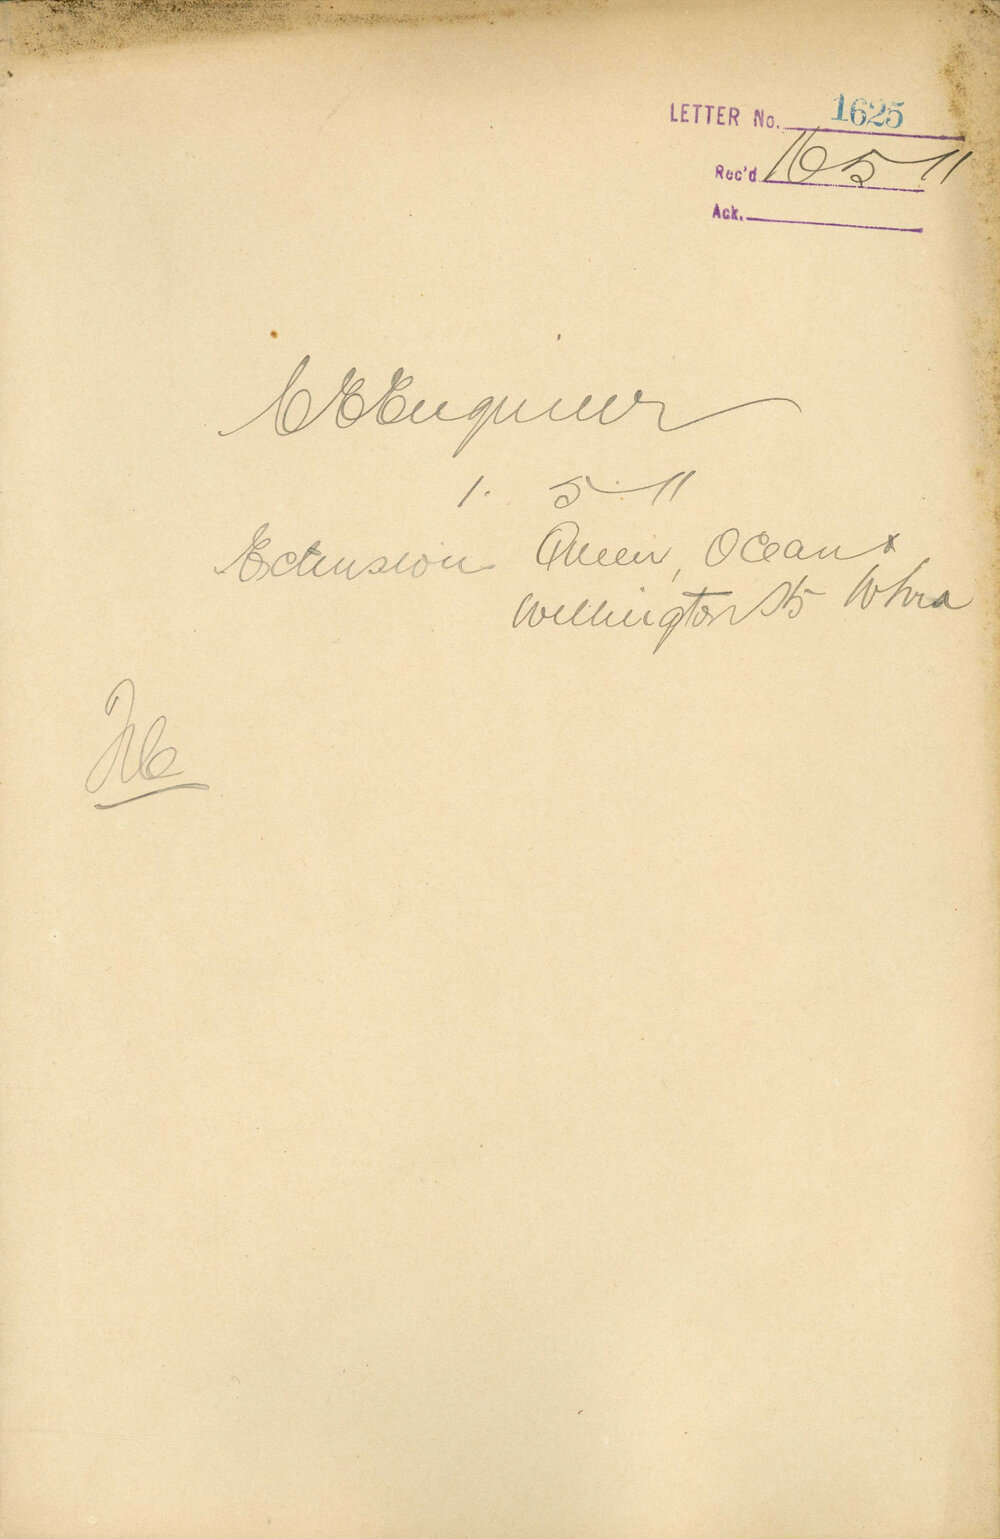 LETTER No. 1625
Rec'd 16 5 11
Ack.
C E Engineer
1. 5 11
Extension Queen, Ocean &
Wellington Sts Whra
File